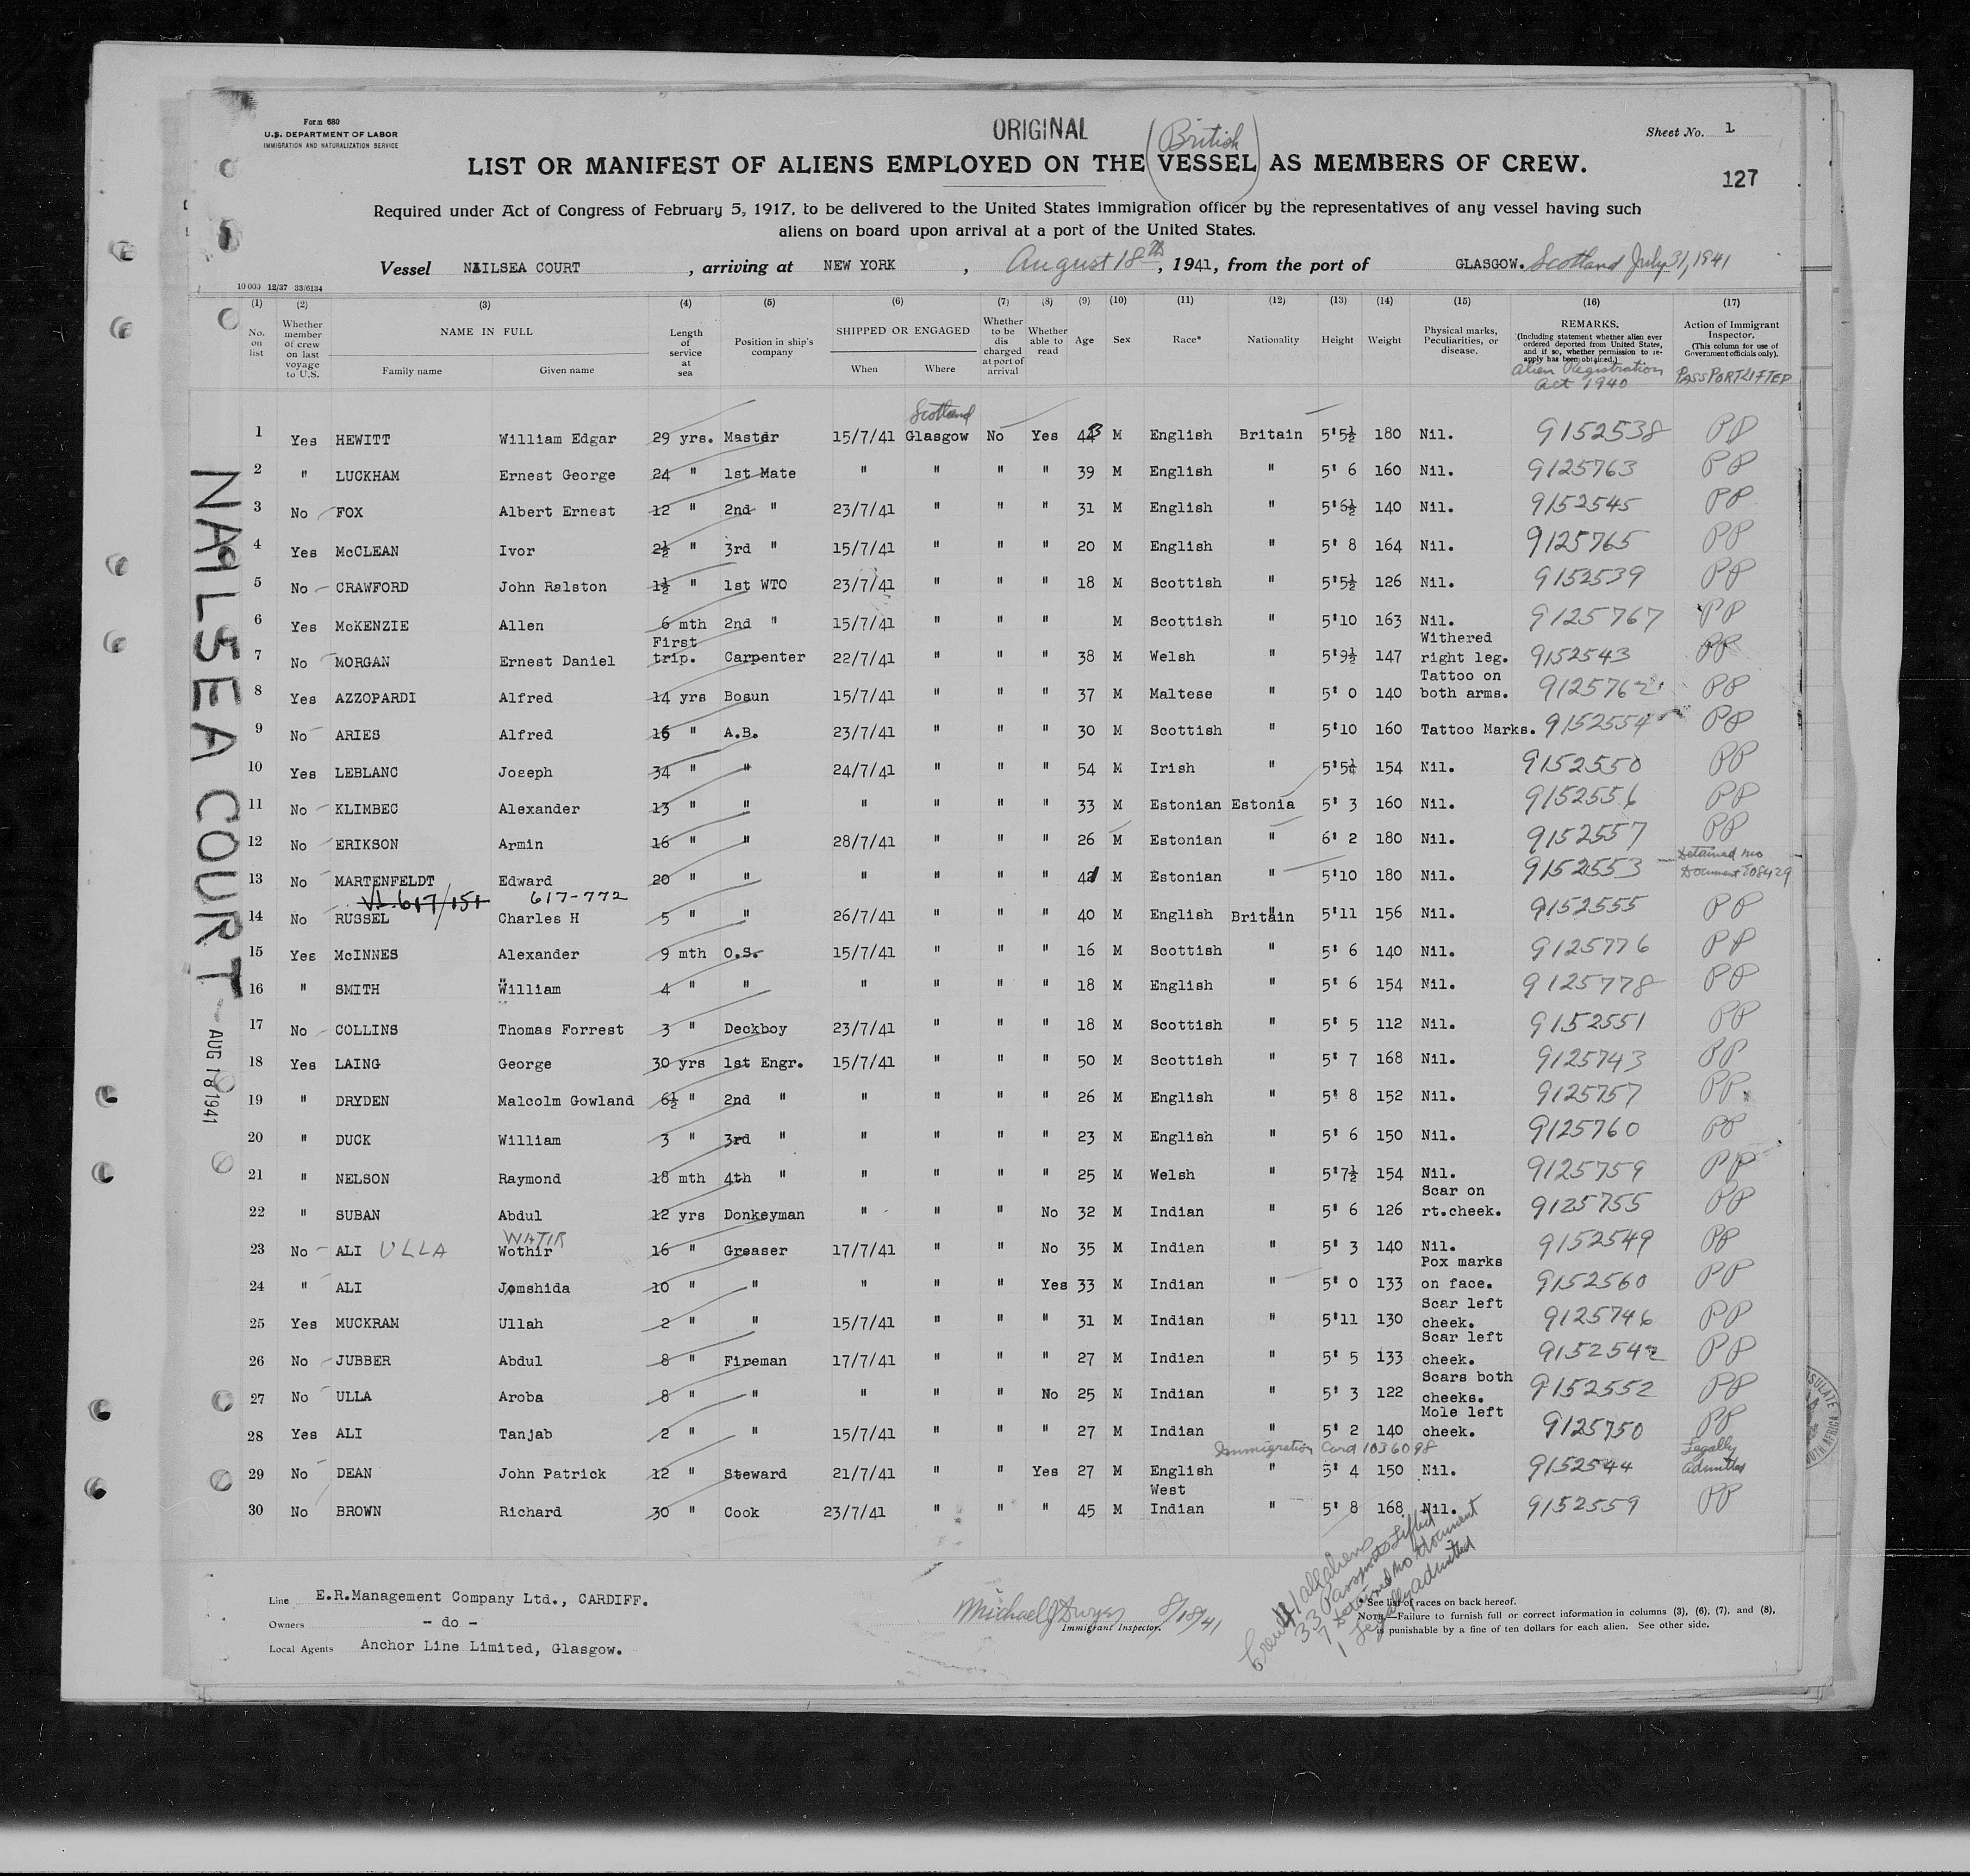 Form 680
U.S. DEPARTMENT OF LABOR
IMMIGRATION AND NATURALIZATION SERVICE
ORIGINAL
Sheet No. 1
(British)
LIST OR MANIFEST OF ALIENS EMPLOYED ON THE VESSEL AS MEMBERS OF CREW.
127
Required under Act of Congress of February 5, 1917, to be delivered to the United States immigration officer by the representatives of any vessel having such
aliens on board upon arrival at a port of the United States.
Vessel NAILSEA COURT, arriving at NEW YORK, August 18th, 1941, from the port of GLASGOW. Scotland July 31, 1941
10 000 12/37 33/6134
(1) (2) (3) (4) (5) (6) (7) (8) (9) (10) (11) (12) (13) (14) (15) (16) (17)
No. on list
Whether member of crew on last voyage to U.S.
NAME IN FULL
Family name Given name
Length of service at sea
Position in ship's company
SHIPPED OR ENGAGED
When Where
Whether to be discharged at port of arrival
Whether able to read
Age Sex Race* Nationality Height Weight
Physical marks, Peculiarities, or disease.
REMARKS.
(Including statement whether alien ever ordered deported from United States, and if so, whether permission to re-apply has been obtained.)
Alien Registration Act 1940
Action of Immigrant Inspector.
(This column for use of Government officials only).
PASSPORT LIFTED
Scotland
1 Yes HEWITT William Edgar 29 yrs. Master 15/7/41 Glasgow No Yes 43 M English Britain 5'5½ 180 Nil. 9152538 PP
2 " LUCKHAM Ernest George 24 " 1st Mate " " " " 39 M English " 5' 6 160 Nil. 9125763 PP
3 No FOX Albert Ernest 12 " 2nd " 23/7/41 " " " 31 M English " 5'6½ 140 Nil. 9152545 PP
4 Yes McCLEAN Ivor 2½ " 3rd " 15/7/41 " " " 20 M English " 5' 8 164 Nil. 9125765 PP
5 No CRAWFORD John Ralston 1½ " 1st WTO 23/7/41 " " " 18 M Scottish " 5'5½ 126 Nil. 9152539 PP
6 Yes McKENZIE Allen 6 mth 2nd " 15/7/41 " " " M Scottish " 5'10 163 Nil. 9125767 PP
7 No MORGAN Ernest Daniel First trip. Carpenter 22/7/41 " " " 38 M Welsh " 5'9½ 147 Withered right leg. 9152543 PP
8 Yes AZZOPARDI Alfred 14 yrs Bosun 15/7/41 " " " 37 M Maltese " 5' 0 140 Tattoo on both arms. 9125762 PP
9 No ARIES Alfred 16 " A.B. 23/7/41 " " " 30 M Scottish " 5'10 160 Tattoo Marks. 9152554 PP
10 Yes LEBLANC Joseph 34 " " 24/7/41 " " " 54 M Irish " 5'5¼ 154 Nil. 9152550 PP
11 No KLIMBEC Alexander 13 " " " " " " 33 M Estonian Estonia 5' 3 160 Nil. 9152556 PP
12 No ERIKSON Armin 16 " " 28/7/41 " " " 26 M Estonian " 6' 2 180 Nil. 9152557 PP
13 No MARTENFELDT Edward 20 " " " " " " 41 M Estonian " 5'10 180 Nil. 9152553 Detained no Document
617/151 617-772
14 No RUSSEL Charles H 5 " " 26/7/41 " " " 40 M English Britain 5'11 156 Nil. 9152555 PP
15 Yes McINNES Alexander 9 mth O.S. 15/7/41 " " " 16 M Scottish " 5' 6 140 Nil. 9125776 PP
16 " SMITH William 4 " " " " " " 18 M English " 5' 6 154 Nil. 9125778 PP
17 No COLLINS Thomas Forrest 3 " Deckboy 23/7/41 " " " 18 M Scottish " 5' 5 112 Nil. 9152551 PP
18 Yes LAING George 30 yrs 1st Engr. 15/7/41 " " " 50 M Scottish " 5' 7 168 Nil. 9125743 PP
19 " DRYDEN Malcolm Gowland 6½ " 2nd " " " " " 26 M English " 5' 8 152 Nil. 9125757 PP
20 " DUCK William 3 " 3rd " " " " " 23 M English " 5' 6 150 Nil. 9125760 PP
21 " NELSON Raymond 18 mth 4th " " " " " 25 M Welsh " 5'7½ 154 Nil. 9125759 PP
22 " SUBAN Abdul 12 yrs Donkeyman " " " No 32 M Indian " 5' 6 126 Scar on rt.cheek. 9125755 PP
23 No ALI ULLA Wothir WATIR 16 " Greaser 17/7/41 " " No 35 M Indian " 5' 3 140 Nil. 9152549 PP
24 " ALI Jomshida 10 " " " " " Yes 33 M Indian " 5' 0 133 Pox marks on face. 9152560 PP
25 Yes MUCKRAM Ullah 2 " " 15/7/41 " " " 31 M Indian " 5'11 130 Scar left cheek. 9125746 PP
26 No JUBBER Abdul 8 " Fireman 17/7/41 " " " 27 M Indian " 5' 5 133 Scar left cheek. 9152542 PP
27 No ULLA Aroba 8 " " " " " No 25 M Indian " 5' 3 122 Scars both cheeks. 9152552 PP
28 Yes ALI Tanjab 2 " " 15/7/41 " " " 27 M Indian " 5' 2 140 Mole left cheek. 9125750 PP
Immigration Card 1036098
29 No DEAN John Patrick 12 " Steward 21/7/41 " " Yes 27 M English " 5' 4 150 Nil. 9152544 Legally admitted
30 No BROWN Richard 30 " Cook 23/7/41 " " " 45 M West Indian " 5' 8 168 Nil. 9152559 PP
NAILSEA COURT
AUG 18 1941
Line E.R.Management Company Ltd., CARDIFF.
Owners - do -
Local Agents Anchor Line Limited, Glasgow.
Michael J Dwyer 8/18/41
Immigrant Inspector.
Crew 41 all aliens
33 Passports Lifted
7 Detained no document
1 Legally admitted
* See list of races on back hereof.
NOTE.—Failure to furnish full or correct information in columns (3), (6), (7), and (8),
is punishable by a fine of ten dollars for each alien. See other side.